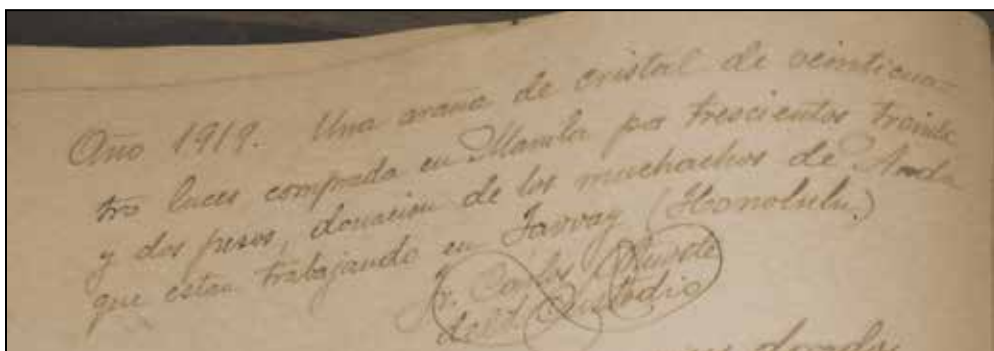 Año 1919. Una araña de cristal de veinticua-
tro luces comprada en Manila por trescientos treinta
y dos pesos, donación de los muchachos de Anda
que estan trabajando en Javvay (Honolulu.)
Fr. Carlos
del Custodio